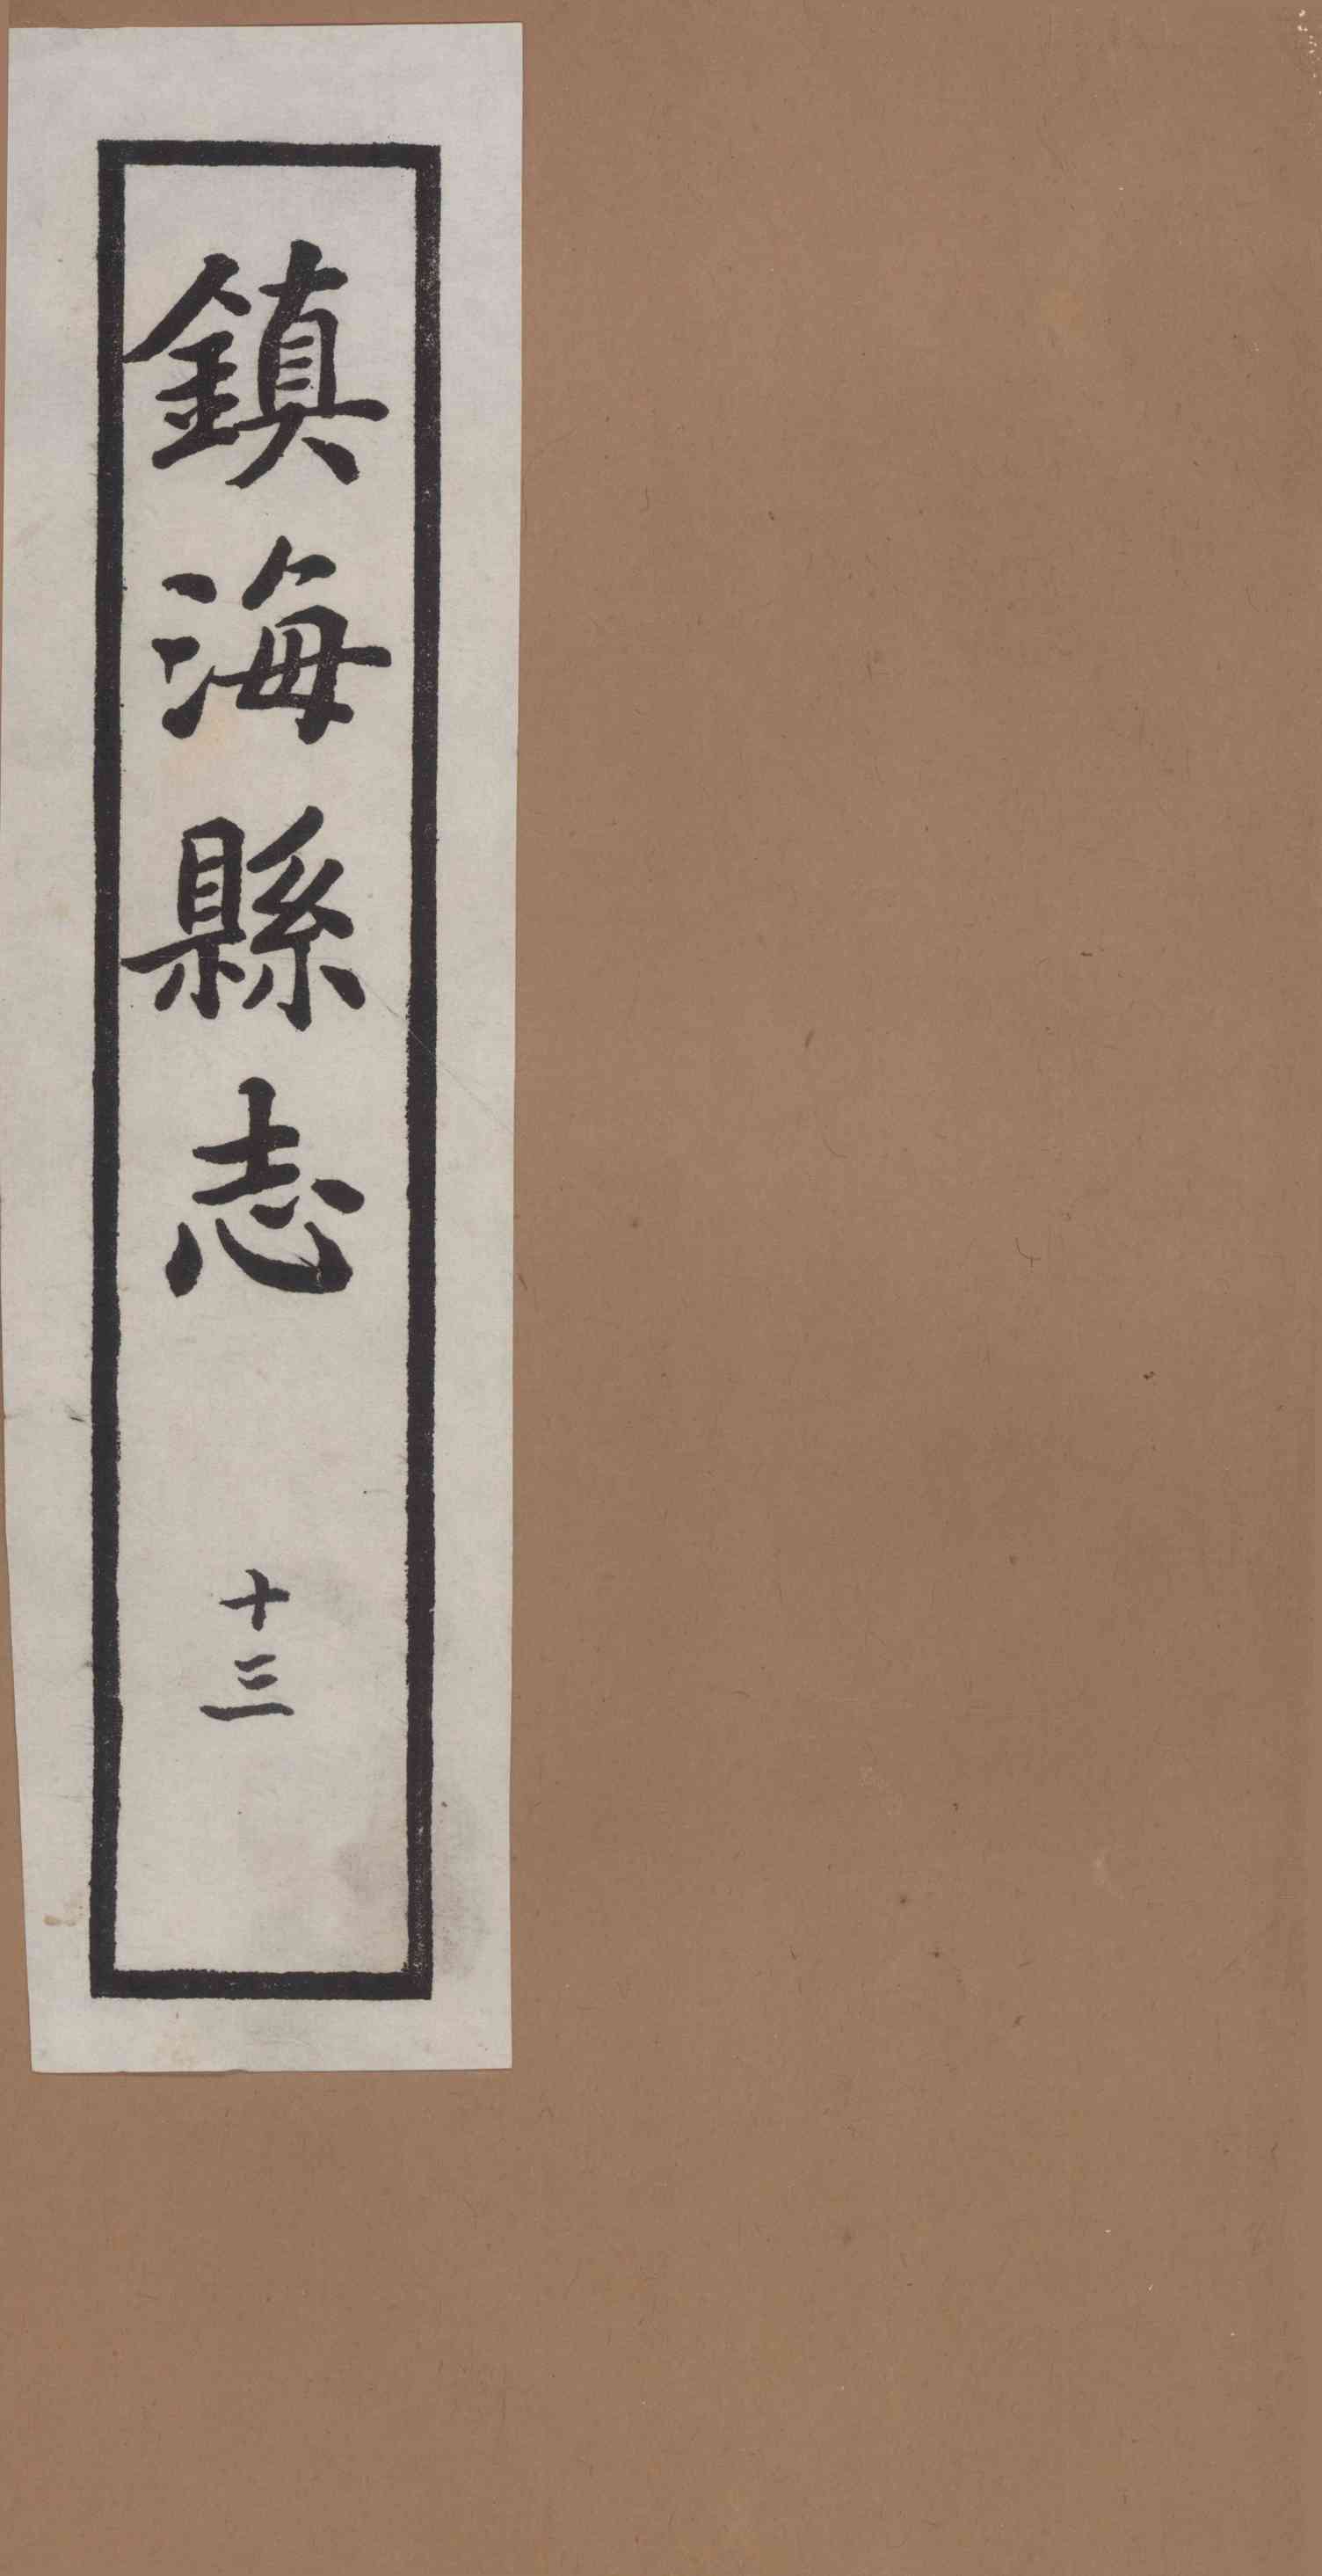 鎮海縣志
十三